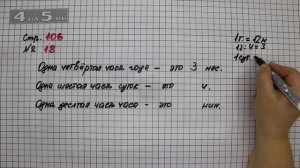 4OK5.ON
Стр. 106
№ 18
Одна четвёртая часть года – это 3 мес.
Одна шестая часть суток – это ч.
Одна десятая часть часа – это мин.
1 г. = 12 м
12 : 4 = 3
1 сут.